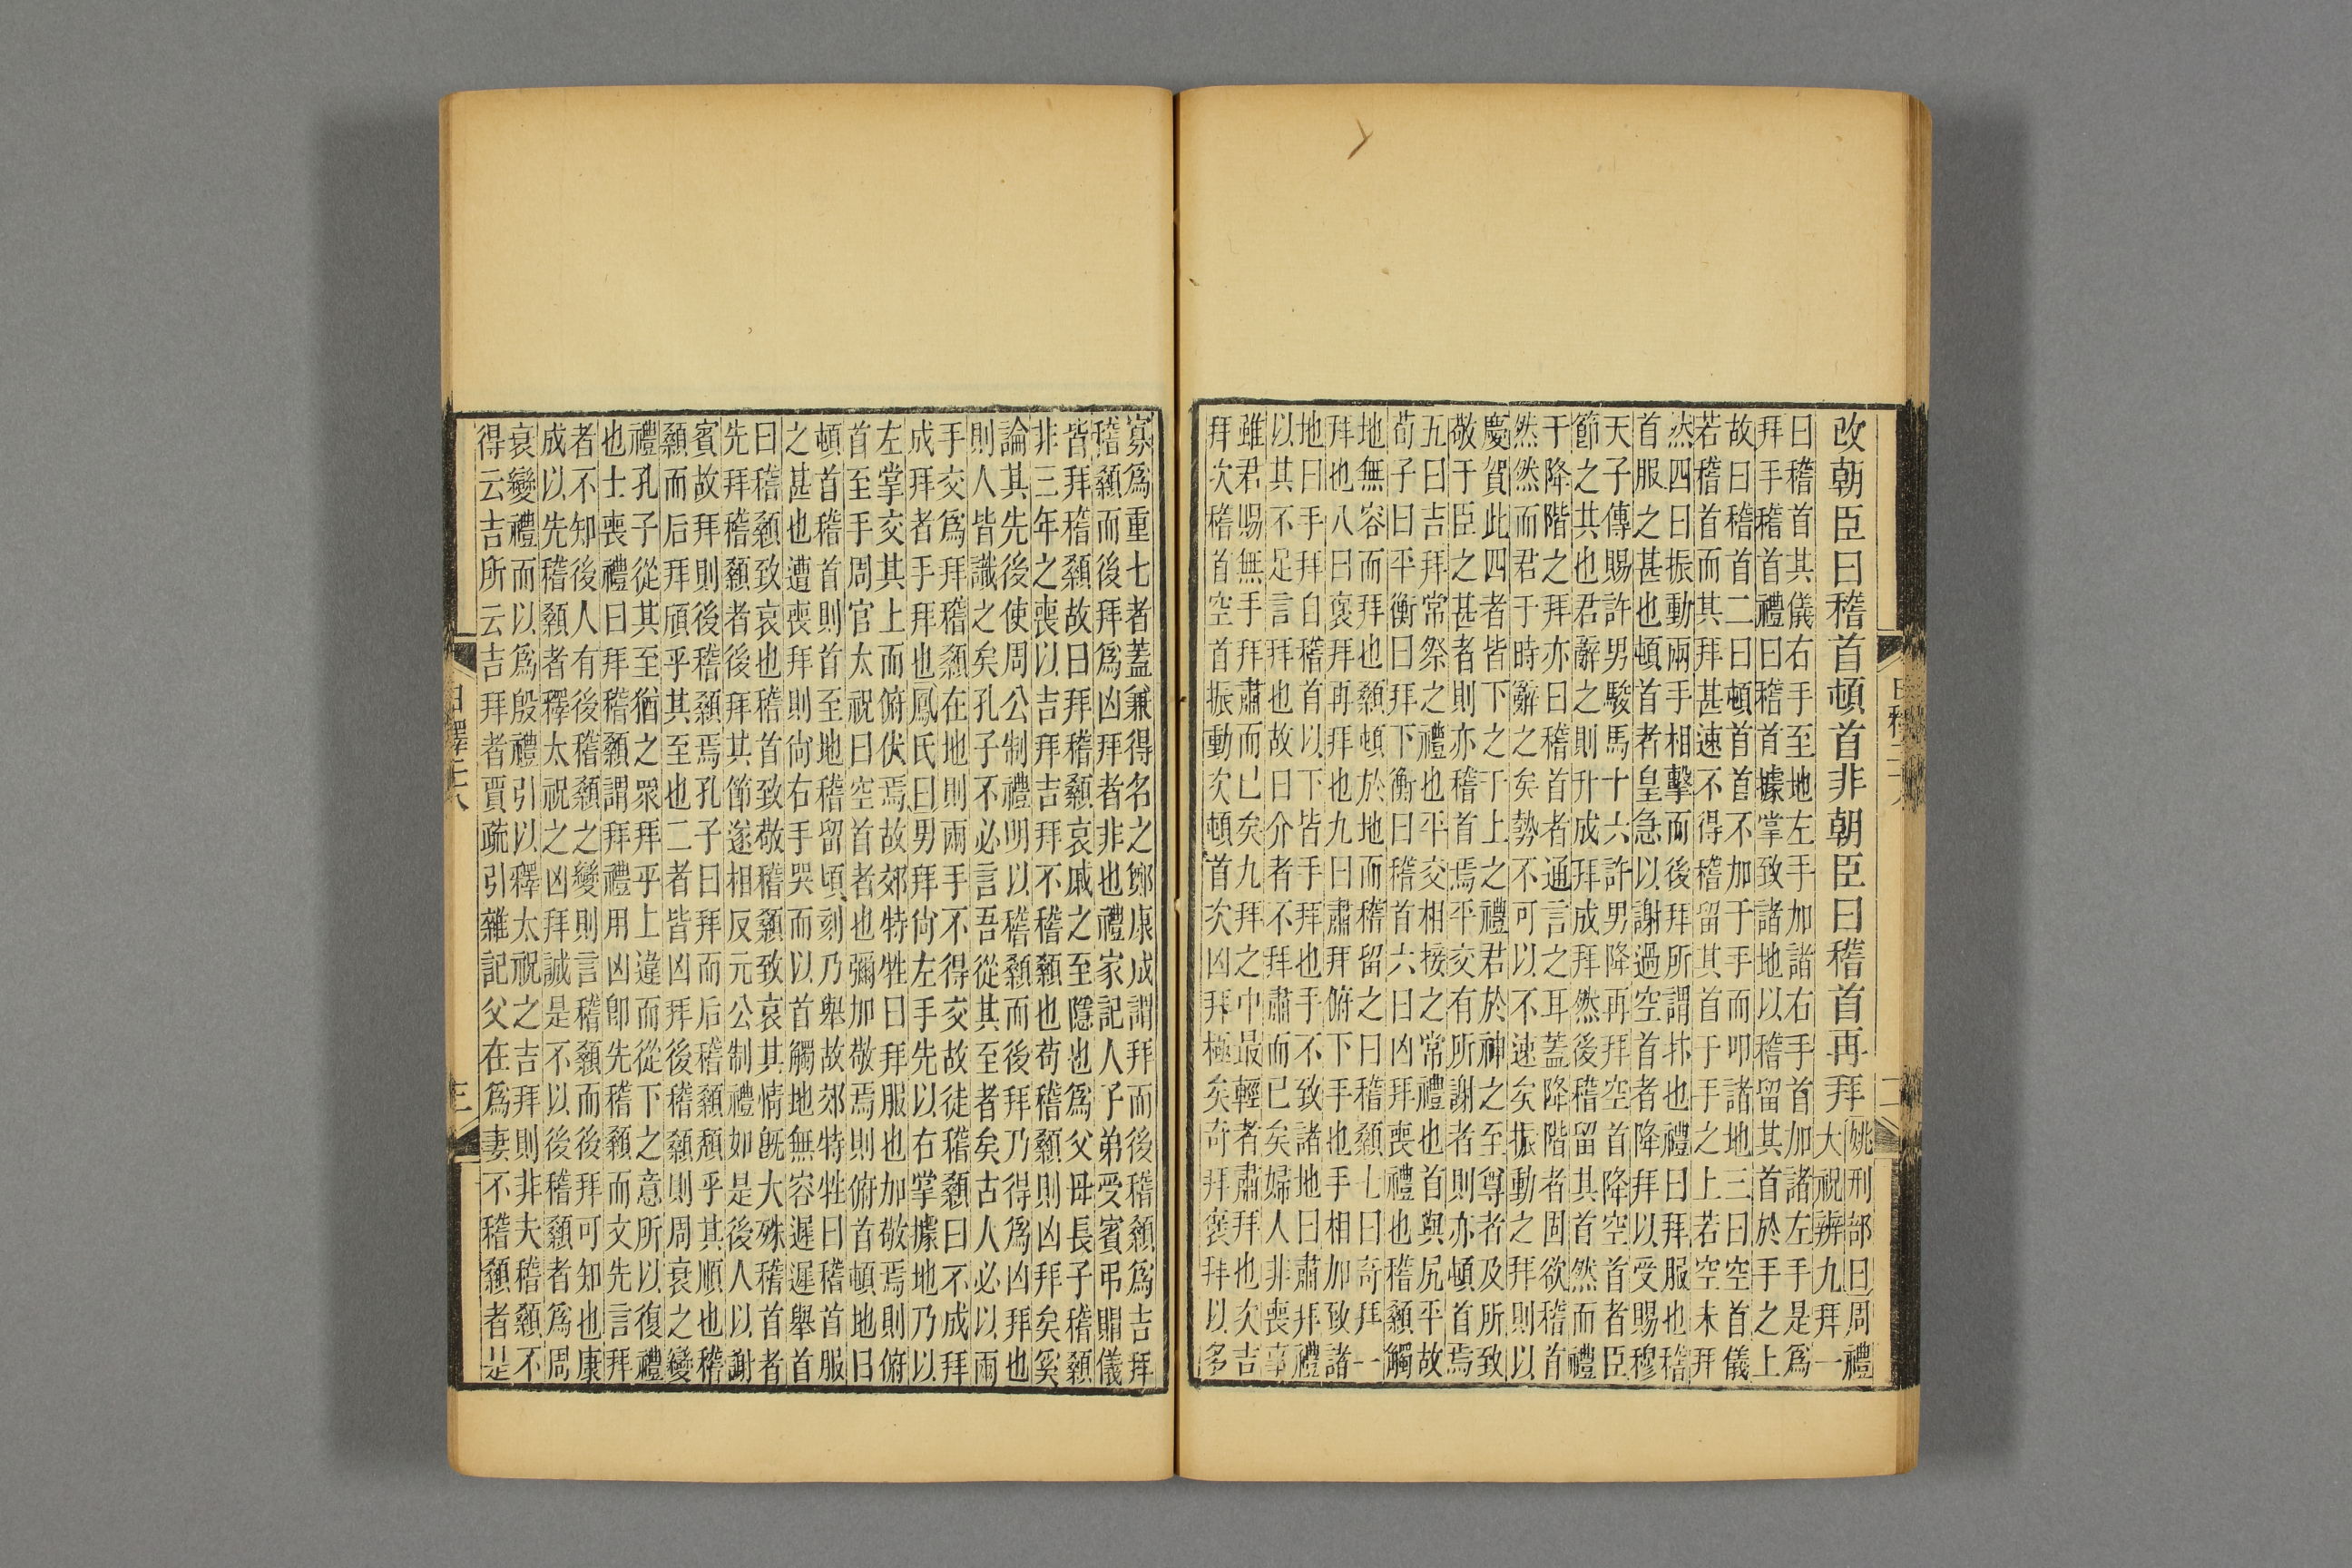 改朝臣曰稽首頓首非朝臣曰稽首再拜
姚刑部曰周禮
大祝辨九拜一
曰稽首其儀右手至地左手加諸右手首加諸左手是爲
拜手稽首禮曰稽首據掌致諸地以稽留其首於手之上
故曰稽首二曰頓首首不加于手而叩諸地三曰空首儀
若稽首而其拜甚速不得稽留其首于手之上若空未拜
然四曰振動兩手相擊而後拜所謂抃也禮曰拜服也稽
首服之甚也頓首者皇急以謝過空首者降拜以受賜穆
天子傳賜許男駿馬十六許男降再拜空首降空首者臣
節之其也君辭之則升成拜成拜然後稽留其首然而禮
于降階之拜亦曰稽首者通言之耳蓋降階者固欲稽首
然然而君于時辭之矣勢不可以不速矣振動之拜則以
慶賀此四者皆下之于上之禮君於神之至尊者及所致
敬于臣之甚者則亦稽首焉平交有所謝者則亦頓首焉
五曰吉拜常祭之禮也平交相接之常禮也首與尻平故
荀子曰平衡曰拜下衡曰稽首六曰凶拜喪禮也稽顙觸
地無容而拜也顙頓於地而稽留之曰稽顙七曰奇拜一
拜也八曰褒拜再拜也九曰肅拜俯下手也手相加致諸
地曰手拜白稽首以下皆手拜也手不致諸地曰肅拜禮
以其不足言拜也故曰介者不拜肅而已矣婦人非喪事
雖君賜無手拜肅而已矣九拜之中最輕者肅拜也次吉
拜次稽首空首振動次頓首次凶拜極矣奇拜褒拜以多
二
寡爲重七者蓋兼得名之鄭康成謂拜而後稽顙爲吉拜
稽顙而後拜爲凶拜者非也禮家記人子弟受賓弔賵儀
皆拜稽顙故曰拜稽顙哀戚之至隱也爲父母長子稽顙
非三年之喪以吉拜吉拜不稽顙也荀稽顙則凶拜矣奚
論其先後使周公制禮明以稽顙而後拜乃得爲凶拜也
則人皆識之矣孔子不必言吾從其至者矣古人必以兩
手交爲拜稽顙在地則兩手不得交故徒稽顙曰不成拜
成拜者手拜也鳳氏曰男拜尙左手先以右掌據地乃以
左掌交其上而俯伏焉故郊特牲曰拜服也加敬焉則俯
首至手周官太祝曰空首者也彌加敬焉則俯首頓地曰
頓首稽首則首至地稽留頃刻乃舉故郊特牲曰稽首服
之甚也遭喪拜則尙右手哭而以首觸地無容遲遲舉首
曰稽顙致哀也稽首致敬稽顙致哀其情旣大殊稽首者
先拜稽顙者後拜其節遂相反元公制禮如是後人以謝
賓故拜則後稽顙焉孔子曰拜而后稽顙頹乎其順也稽
顙而后拜頎乎其至也二者皆凶拜後稽顙則周衰之變
禮孔子從其至猶之衆拜乎上違而從下之意所以復禮
也士喪禮曰拜稽顙謂拜禮用凶卽先稽顙而文先言拜
者不知後人有後稽顙之變則言稽顙而後拜可知也康
成以先稽顙者釋太祝之凶拜誠是不以後稽顙者爲周
衰變禮而以爲殷禮引以釋太祝之吉拜則非夫稽顙不
得云吉所云吉拜者賈疏引雜記父在爲妻不稽顙者是
三